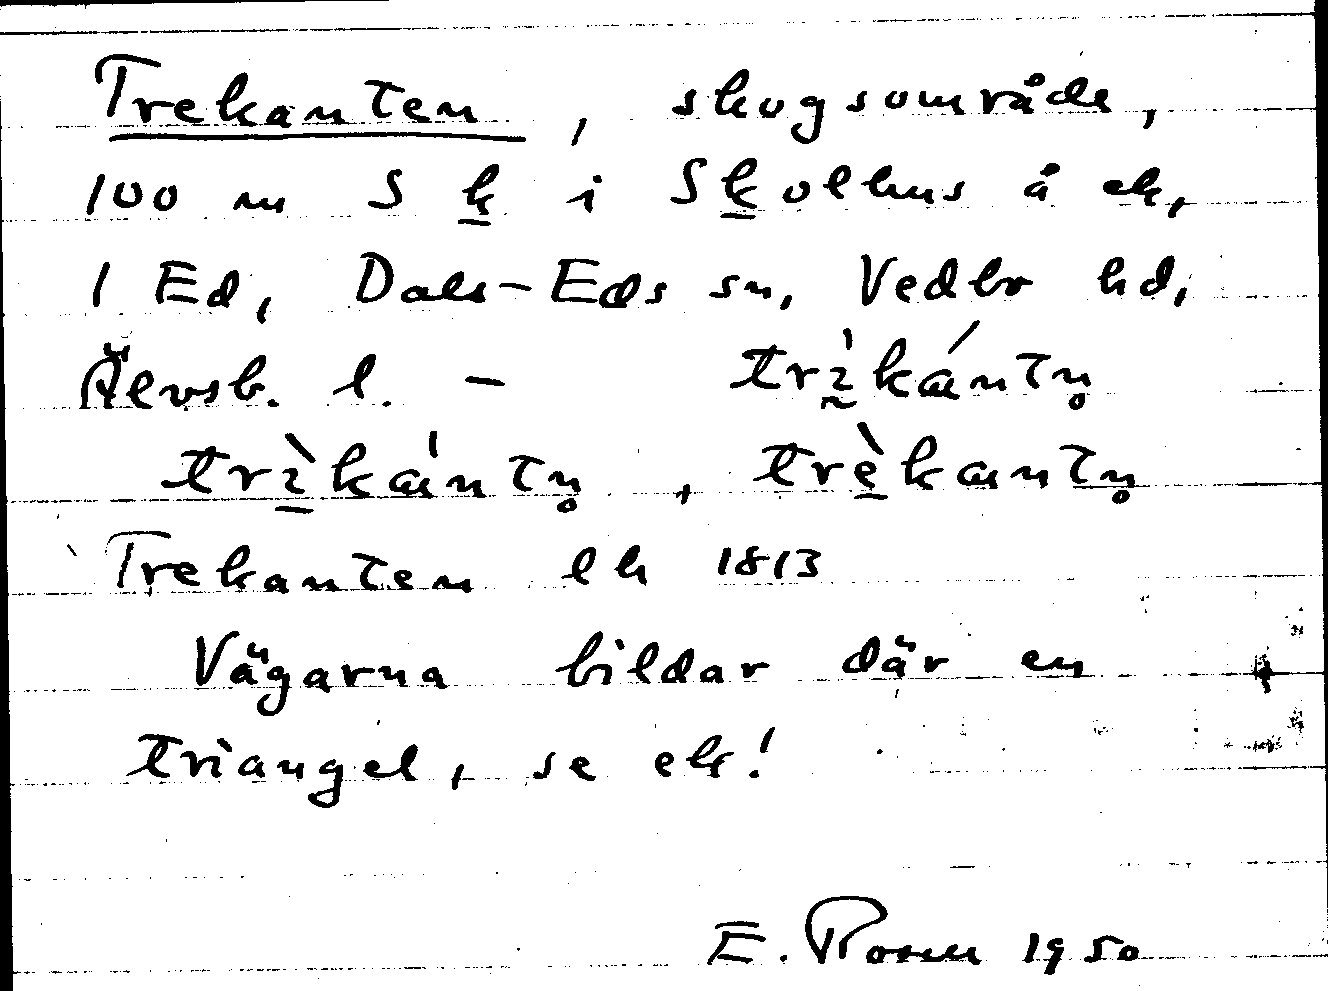 Trekanten, skogsområde,
100 m S k i Skolhus å ek,
1 Ed, Dals-Eds sn, Vedbo hd,
Älvsb. l. -
Trekanten lh 1813
Vägarna bildar där en
triangel, se ek!
E. Rosell 1950